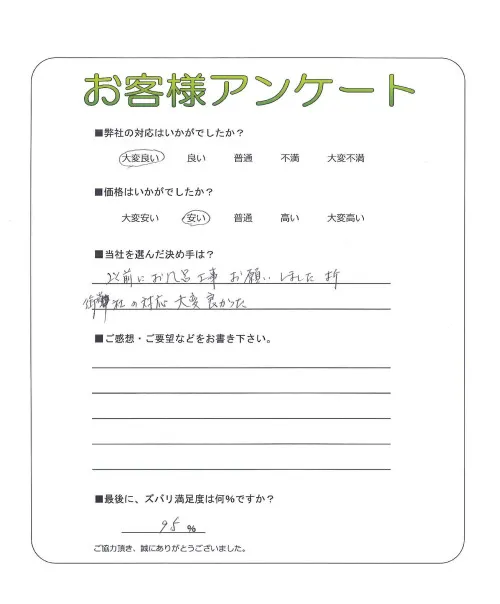 お客様アンケート
■弊社の対応はいかがでしたか?
大変良い 良い 普通 不満 大変不満
■価格はいかがでしたか?
大変安い 安い 普通 高い 大変高い
■当社を選んだ決め手は?
以前にお風呂工事お願いしました折
御社の対応大変良かった
■ご感想・ご要望などをお書き下さい。
■最後に、ズバリ満足度は何%ですか?
95 %
ご協力頂き、誠にありがとうございました。